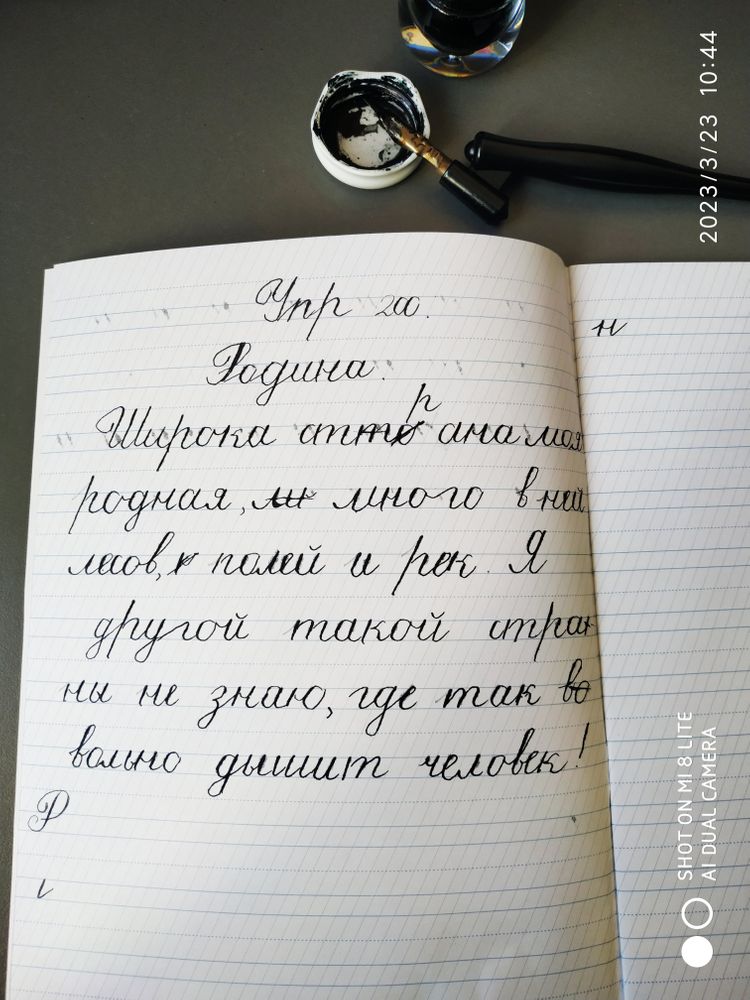 Упр 200.
Родина.
Широка страна моя
родная, много в ней
лесов, полей и рек. Я
другой такой стран
ны не знаю, где так во
вольно дышит человек!
Р
и
н
2023/3/23 10:44
SHOT ON MI 8 LITE
AI DUAL CAMERA